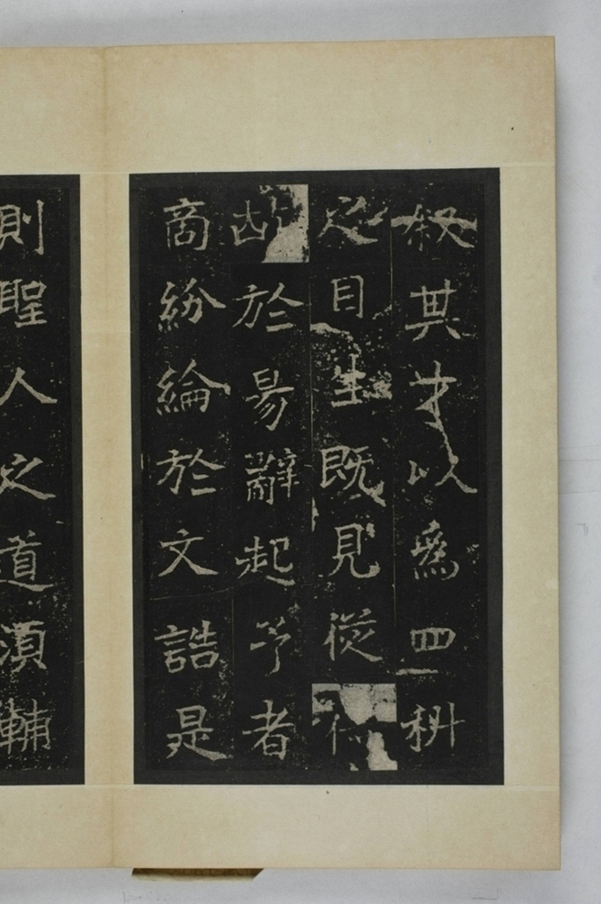 叙其才以爲四科
之目生既見從
於易辭起予者
商紛綸於文誥是
則聖人之道湏輔